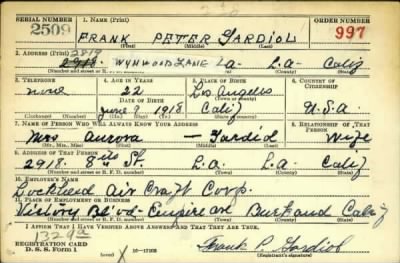 SERIAL NUMBER 1. NAME (Print) ORDER NUMBER
2509 FRANK PETER GARDIOL 997
(First) (Middle) (Last)
2. ADDRESS (Print)
2819
2918 WYNWOOD LANE La. L.A. Calif
(Number and street or R. F. D. number) (Town) (County) (State)
3. TELEPHONE 4. AGE IN YEARS 5. PLACE OF BIRTH 6. COUNTRY OF CITIZENSHIP
none 22 Los Angeles
DATE OF BIRTH
June 9 1918 Calif U.S.A.
(Exchange) (Number) (Mo.) (Day) (Yr.) (State or country)
7. NAME OF PERSON WHO WILL ALWAYS KNOW YOUR ADDRESS 8. RELATIONSHIP OF THAT PERSON
Mrs Aurora — Gardiol Wife
(Mr., Mrs., Miss) (First) (Middle) (Last)
9. ADDRESS OF THAT PERSON
2918. 8th St. L.A. L.A. Calif
(Number and street or R. F. D. number) (Town) (County) (State)
10. EMPLOYER'S NAME
Lockheed Air Craft Corp.
11. PLACE OF EMPLOYMENT OR BUSINESS
Victory Blvd - Empire av Burbank Calif
(Number and street or R. F. D. number) (Town) (County) (State)
I AFFIRM THAT I HAVE VERIFIED ABOVE ANSWERS AND THAT THEY ARE TRUE.
1329a
REGISTRATION CARD
D. S. S. Form 1 16—17105 Frank P. Gardiol
(Registrant's signature)